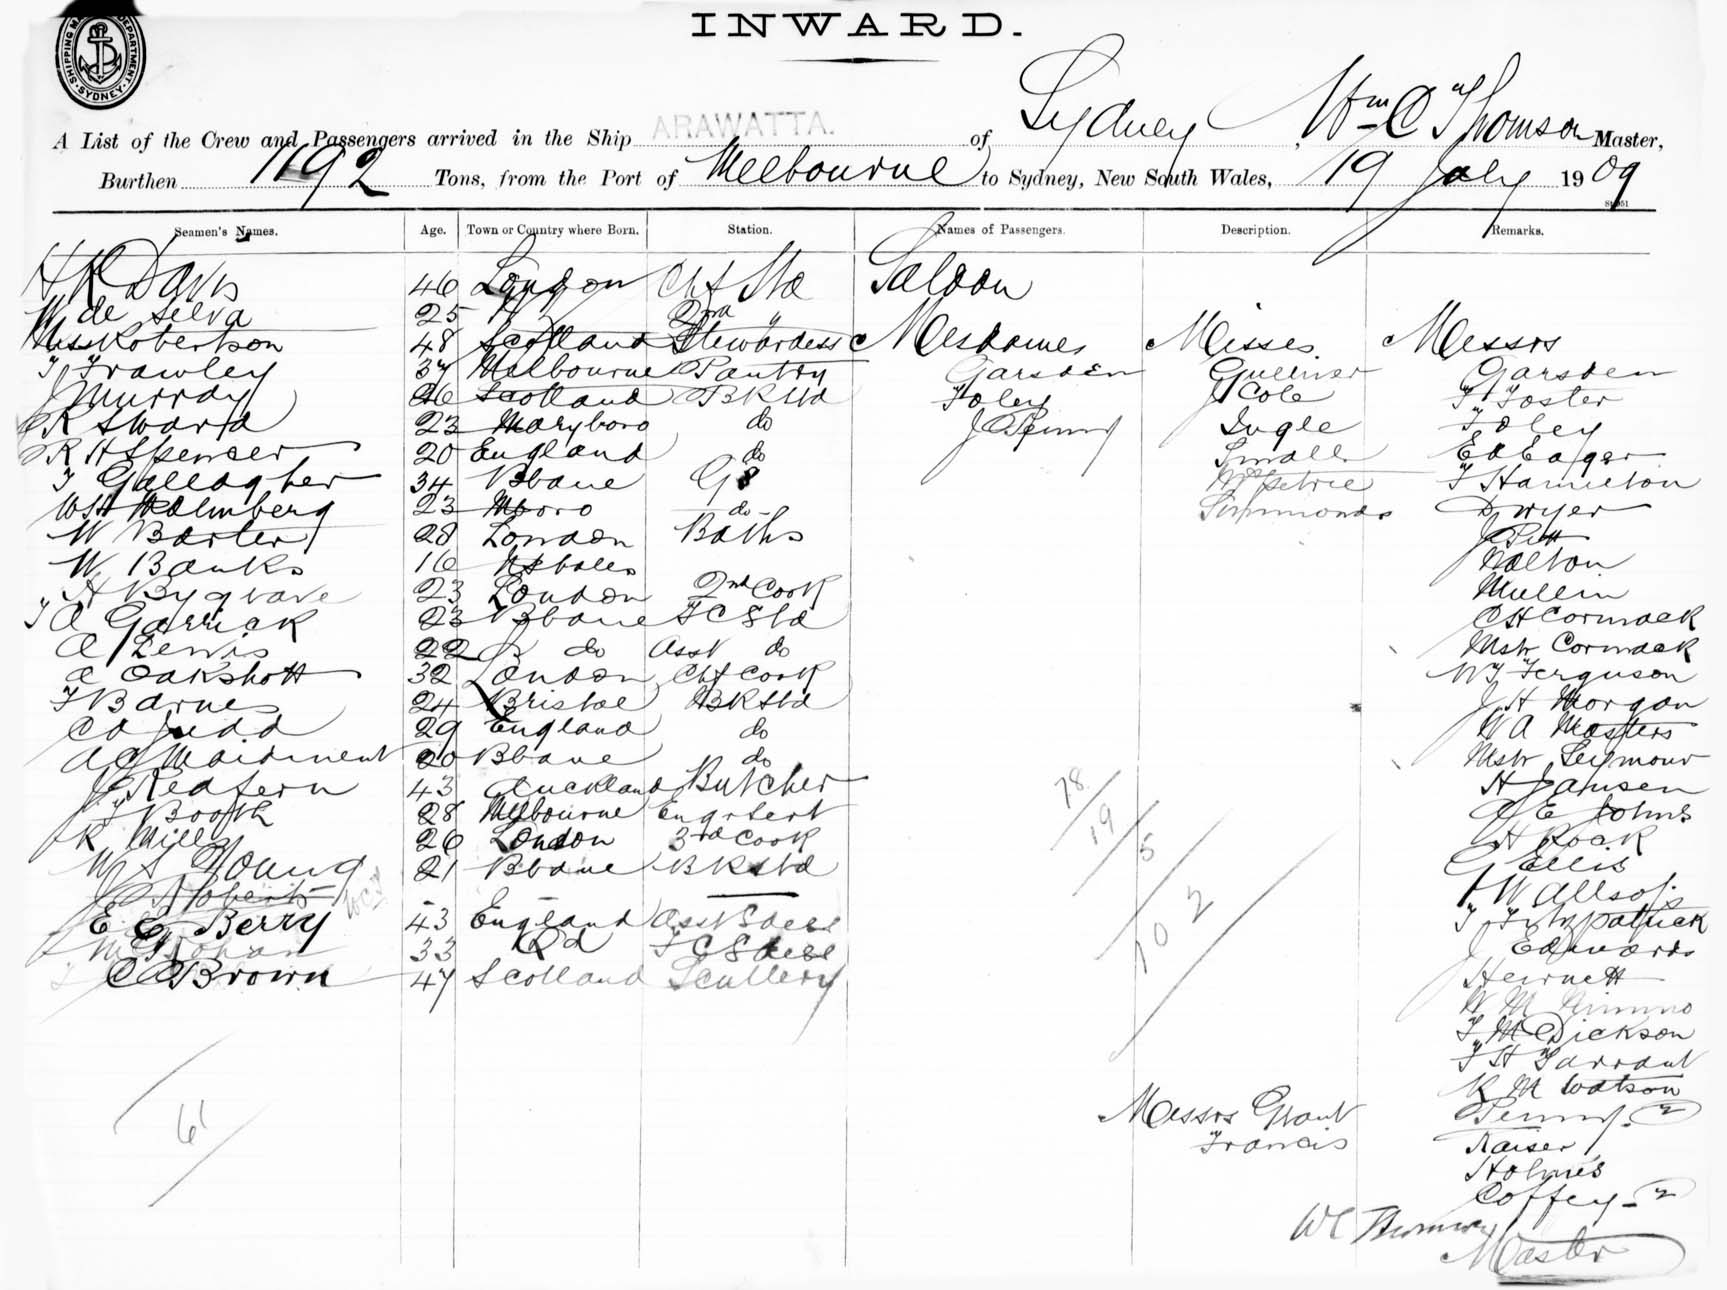 INWARD.
SHIPPING MA DEPARTMENT · SYDNEY ·
A List of the Crew and Passengers arrived in the Ship ARAWATTA. of Sydney, Wm C Thomson Master,
Burthen 1192 Tons, from the Port of Melbourne to Sydney, New South Wales, 19 July 1909
Seamen's Names. Age. Town or Country where Born. Station. Names of Passengers. Description. Remarks.
H R Davis 46 London Chf Std Saloon
W de Selva 25 " 2nd "
Miss Robertson 48 Scotland Stewardess Mesdames Misses Messrs
T Frawley 37 Melbourne Pantry Garsden Gulliver Garsden
J Murray 26 Scotland BK Std Foley J Cole F Foster
R Sward 23 Maryboro do J Penny Ingle Foley
R H Spencer 20 England do Small Ed Eager
T Gallagher 34 Bbane G S McPetrie T Hamilton
W H Holmberg 23 Mboro do Simmonds Dwyer
W Barter 28 London Baths J Pitt
W Banks 16 Dalton
H Bygrave 23 London 2nd Cook Mullin
T A Garrick 23 Bbane F C Std C H Cormack
A Lewis 22 do Asst do Mstr Cormack
A Oakshott 32 London Chf Cook W T Ferguson
F Barnes 24 Bristol BK Std J H Morgan
C A Judd 29 England do W A Masters
A G Maidment 20 Bbane do Mstr Seymour
J Redfern 43 Auckland Butcher H Jansen
T Booth 28 Melbourne Engrs Servt A E Johns
R Mills 26 London 3rd Cook H Rock
W S Young 21 Bbane BK Std G Ellis
J Roberts - W Allsop
E C Berry 43 England Asst Saloon T Fitzpatrick
33 Qld F C Saloon J Edwards
C Brown 47 Scotland Scullery Hewnett
W M Nimmo
T M Dickson
F H Tarrant
K M Watson
Messrs Grant Penny - 2
Francis Kaiser
Holmes
Coffey - 2
78
19
5
102
61
W C Thomson
Master